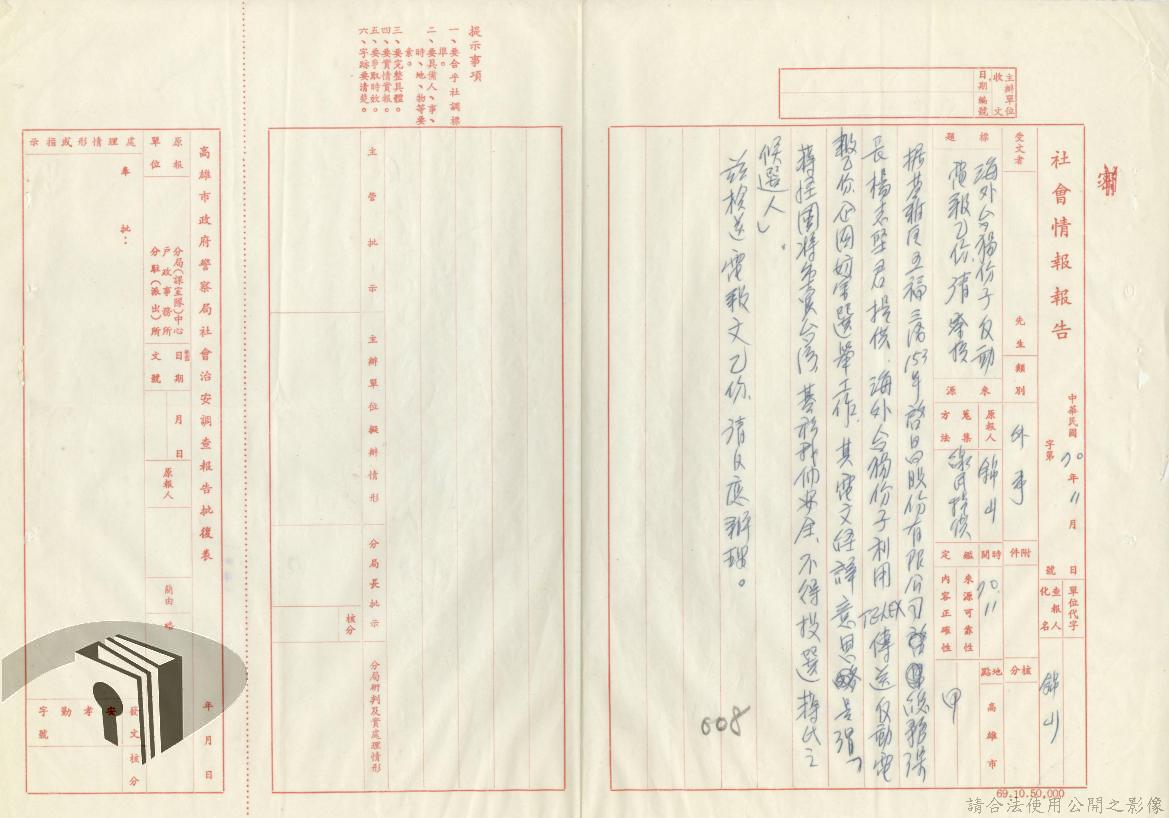 密
社會情報報告
中華民國70年11月 日
字第 號
單位代字
查報人化名
錦山
受文者
先生
類別
外事
附件
核分
標題
海外台獨份子反動
電報乙份,請 察核
來源
原報人
錦山
蒐集方法
線民提供
時間
70.11
鑑定
來源可靠性
內容正確性
甲
地點
高雄市
主辦單位
收文
日期
編號
据苓雅區五福三路153號啟昌股份有限公司總務課
長楊志堅君提供.海外台獨份子利用TELEX傳送反動電
報乙份企圖妨害選舉工作.其電文經譯意思略是謂「
蔣經國將出賣台灣,基於我們安全,不得投選蔣氏之
候選人」。
茲檢送電報文乙份,請反應辦理。
608
69.10.50,000
提示事項
一、要合乎社調標
準。
二、要具備人、事、
時、地、物等要
素。
三、要完整具體。
四、要實情實報。
五、要爭取時效。
六、字跡要清楚。
主管批示
主辦單位擬辦情形
分局長批示
核分
分局研判及實處理情形
高雄市政府警察局社會治安調查報告批復表
原報單位
分局(課室隊)中心
戶政事務所
分駐(派出)所
日期
文號
月 日
原報人
簡由
年 月 日
處理情形或指示
奉 批:
發文
字號
安孝勤
核分
請合法使用公開之影像